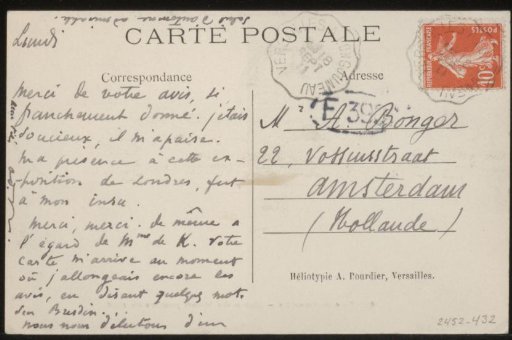 Salut d'automne
CARTE POSTALE
Lundi
Correspondance
Adresse
merci de votre avis, si
franchement donné. j'étais
soucieux, il m'apaise.
ma présence à cette ex-
position de Londres, fut
à mon insu.
merci, merci. de même a
l'égard de Mme de K. votre
carte m'arrive au moment
où j'allongeais encore les
avis, en disant quelques mots
sur Bresdin.
nous nous délectons d'un
POSTES
10c
F 39
M A. Bonger
22, Vossiusstraat
Amsterdam
(Hollande)
Héliotypie A. Bourdier, Versailles.
2452-432